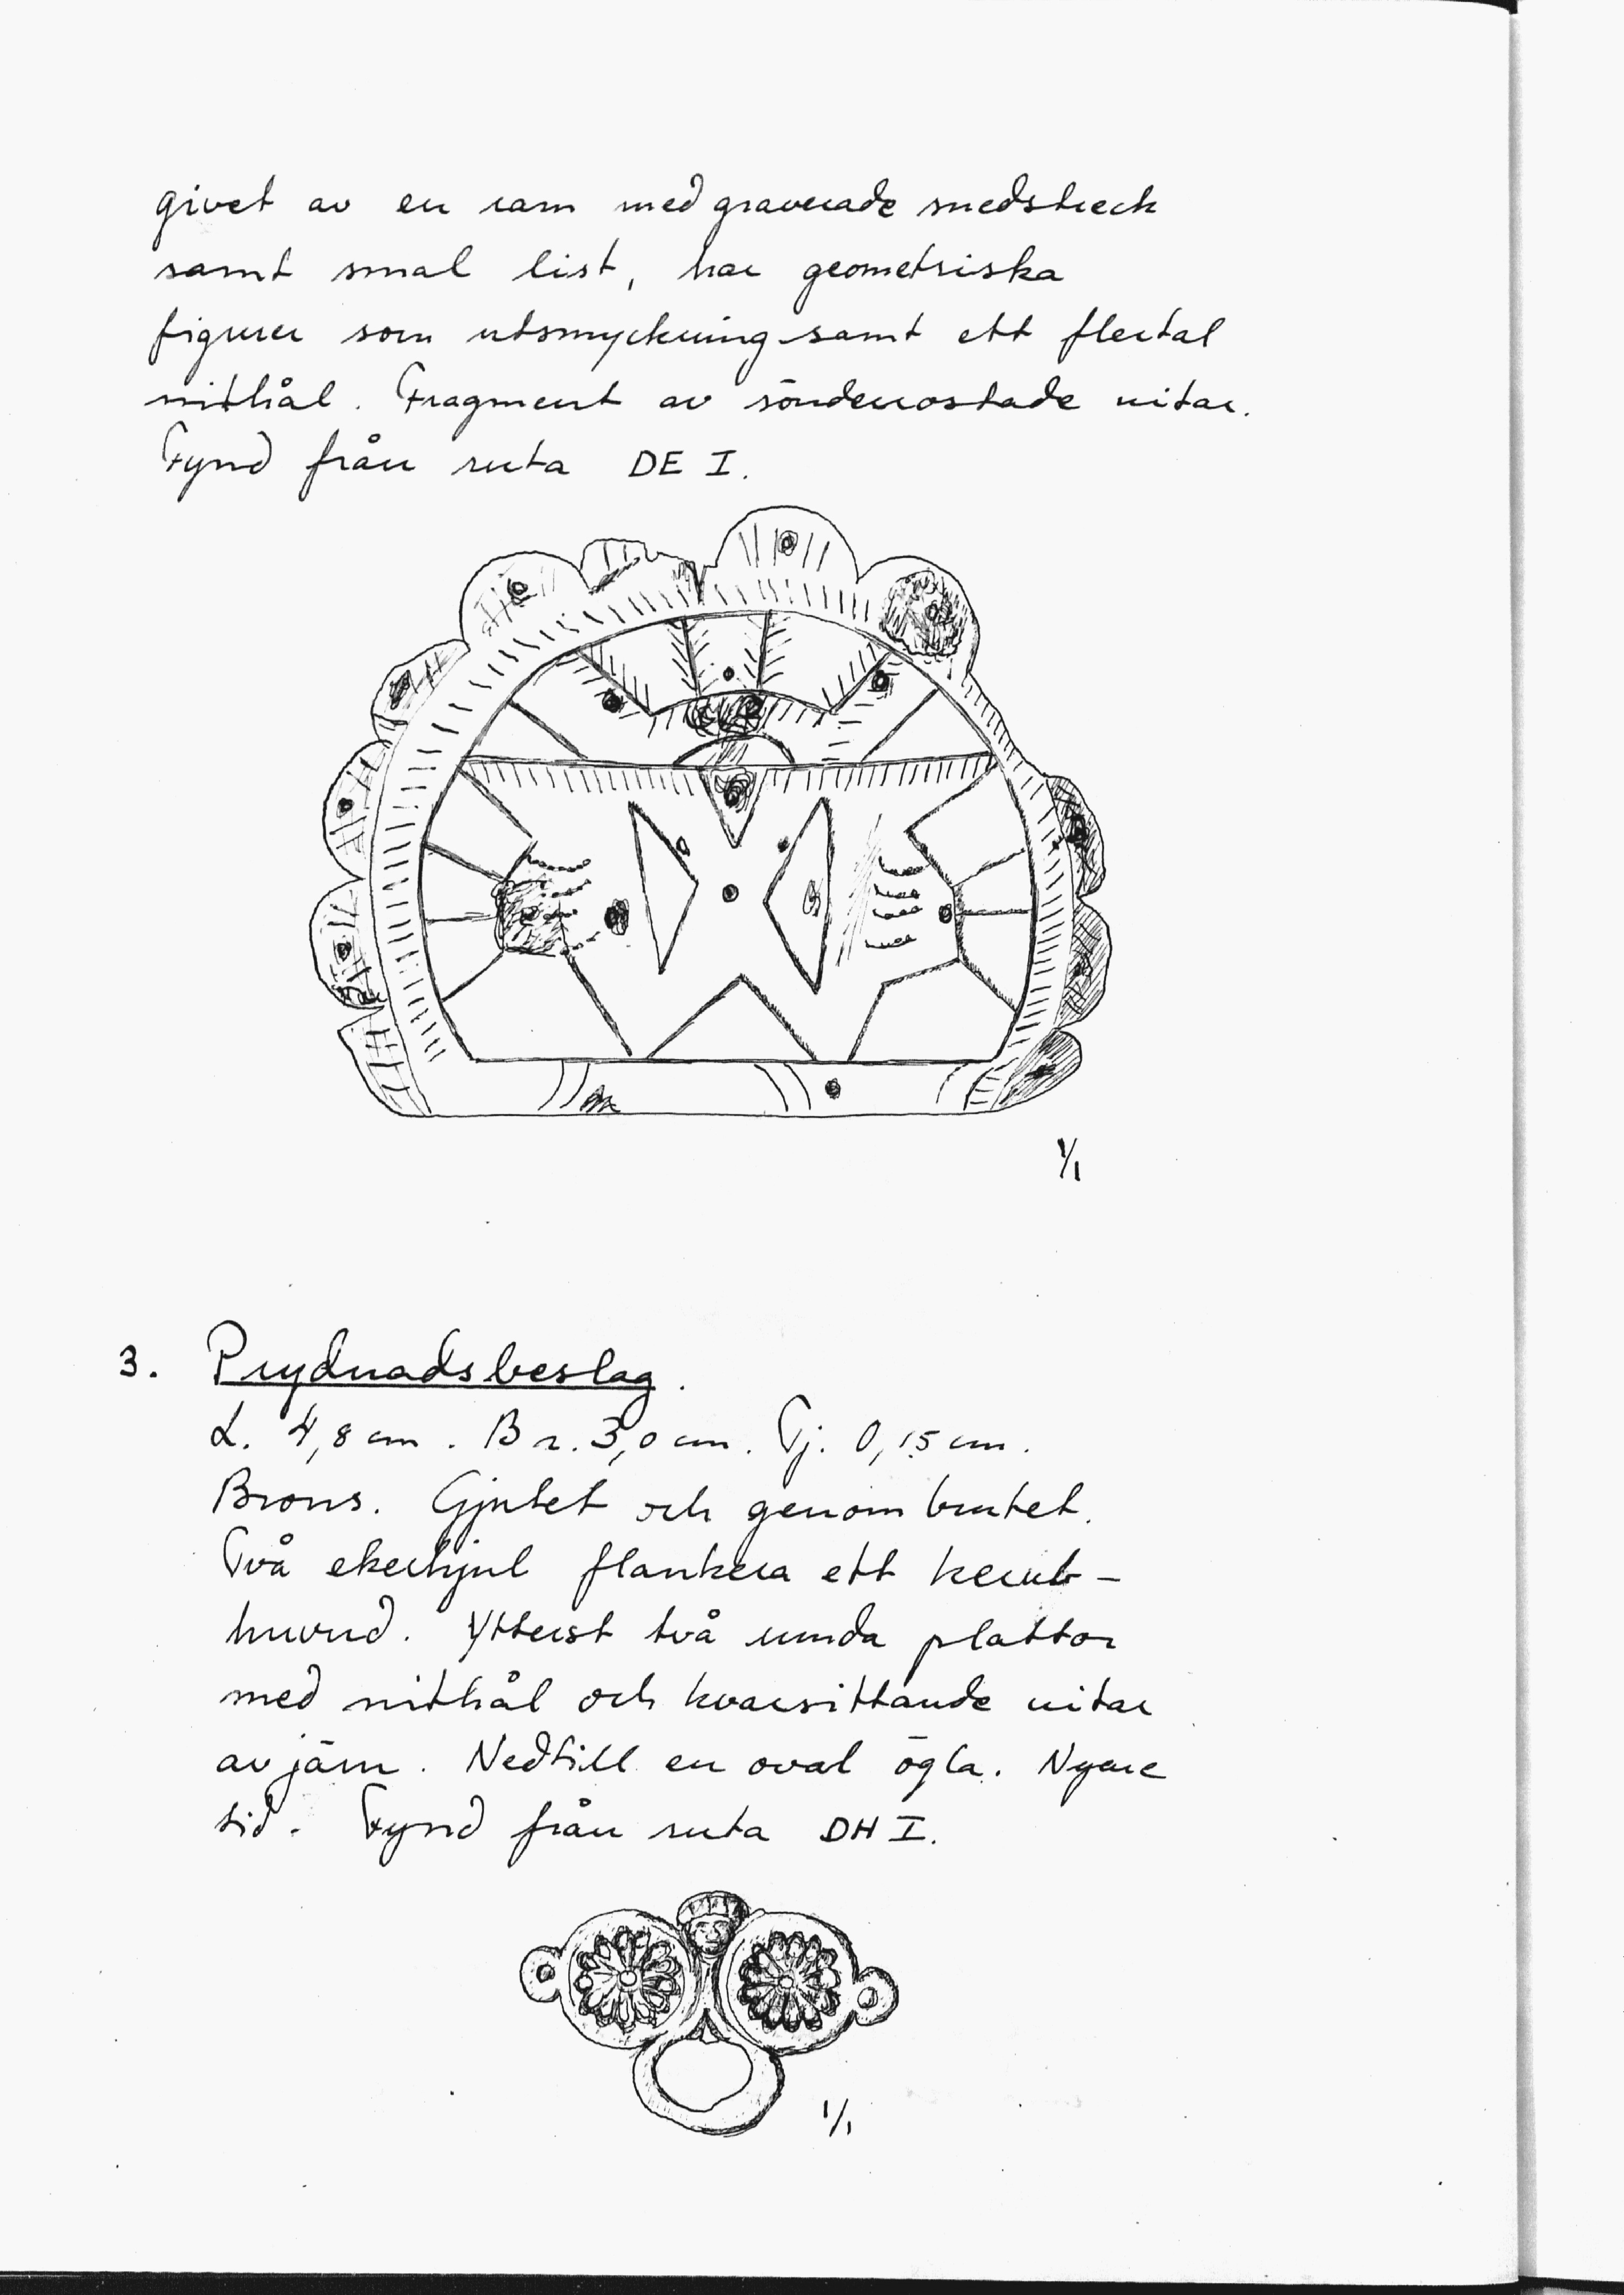 givet av en ram med graverade snedstreck
samt smal list, har geometriska
figurer som utsmyckning samt ett flertal
nithål. Fragment av sönderrostade nitar.
Fynd från ruta DE I.
1/1
3. Prydnadsbeslag.
L. 4,8 cm. Br. 3,0 cm. Tj. 0,15 cm.
Brons. Gjutet och genombrutet.
Två ekerhjul flankera ett kerub-
huvud. Ytterst två runda plattor
med nithål och kvarsittande nitar
av järn. Nedtill en oval ögla. Nyare
tid. Fynd från ruta DH I.
1/1